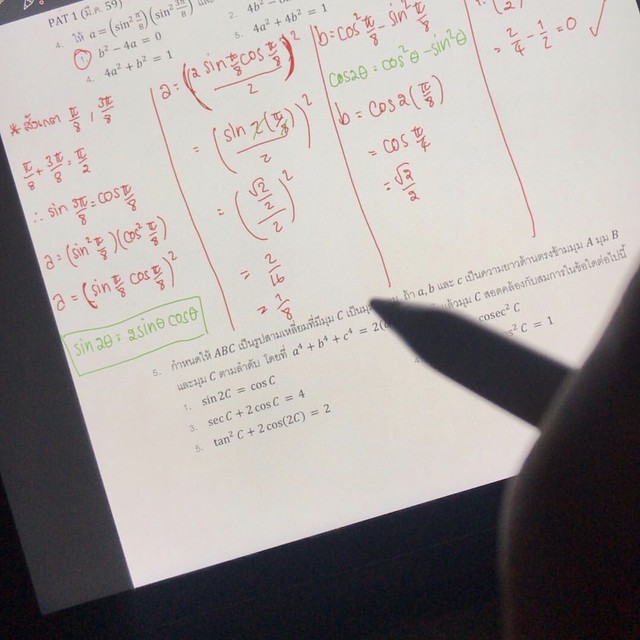 PAT 1 (มี.ค. 59)
4. ให้ a = (sin² π/8)(sin² 3π/8)
1. b² − 4a = 0
2. 4b² −
4. 4a² + b² = 1
5. 4a² + 4b² = 1
* สังเกต π/8 , 3π/8
π/8 + 3π/8 = π/2
∴ sin 3π/8 = cos π/8
a = (sin² π/8)(cos² π/8)
a = (sin π/8 cos π/8)²
sin2θ = 2sinθ cosθ
a = (2 sin π/8 cos π/8 / 2)²
= (sin 2(π/8) / 2)²
= (√2/2 / 2)²
= 2/16
= 1/8
b = cos² π/8 − sin² π/8
cos2θ = cos²θ − sin²θ
b = cos 2(π/8)
= cos π/4
= √2/2
= 2/4 − 1/2 = 0 ✓
5. กำหนดให้ ABC เป็นรูปสามเหลี่ยมที่มีมุม C เป็น ถ้า a, b และ c เป็นความยาวด้านตรงข้ามมุม A มุม B
และมุม C ตามลำดับ โดยที่ a⁴ + b⁴ + c⁴ = 2( แล้วมุม C สอดคล้องกับสมการในข้อใดต่อไปนี้
1. sin 2C = cos C
cosec² C
3. sec C + 2 cos C = 4
C = 1
5. tan² C + 2 cos(2C) = 2